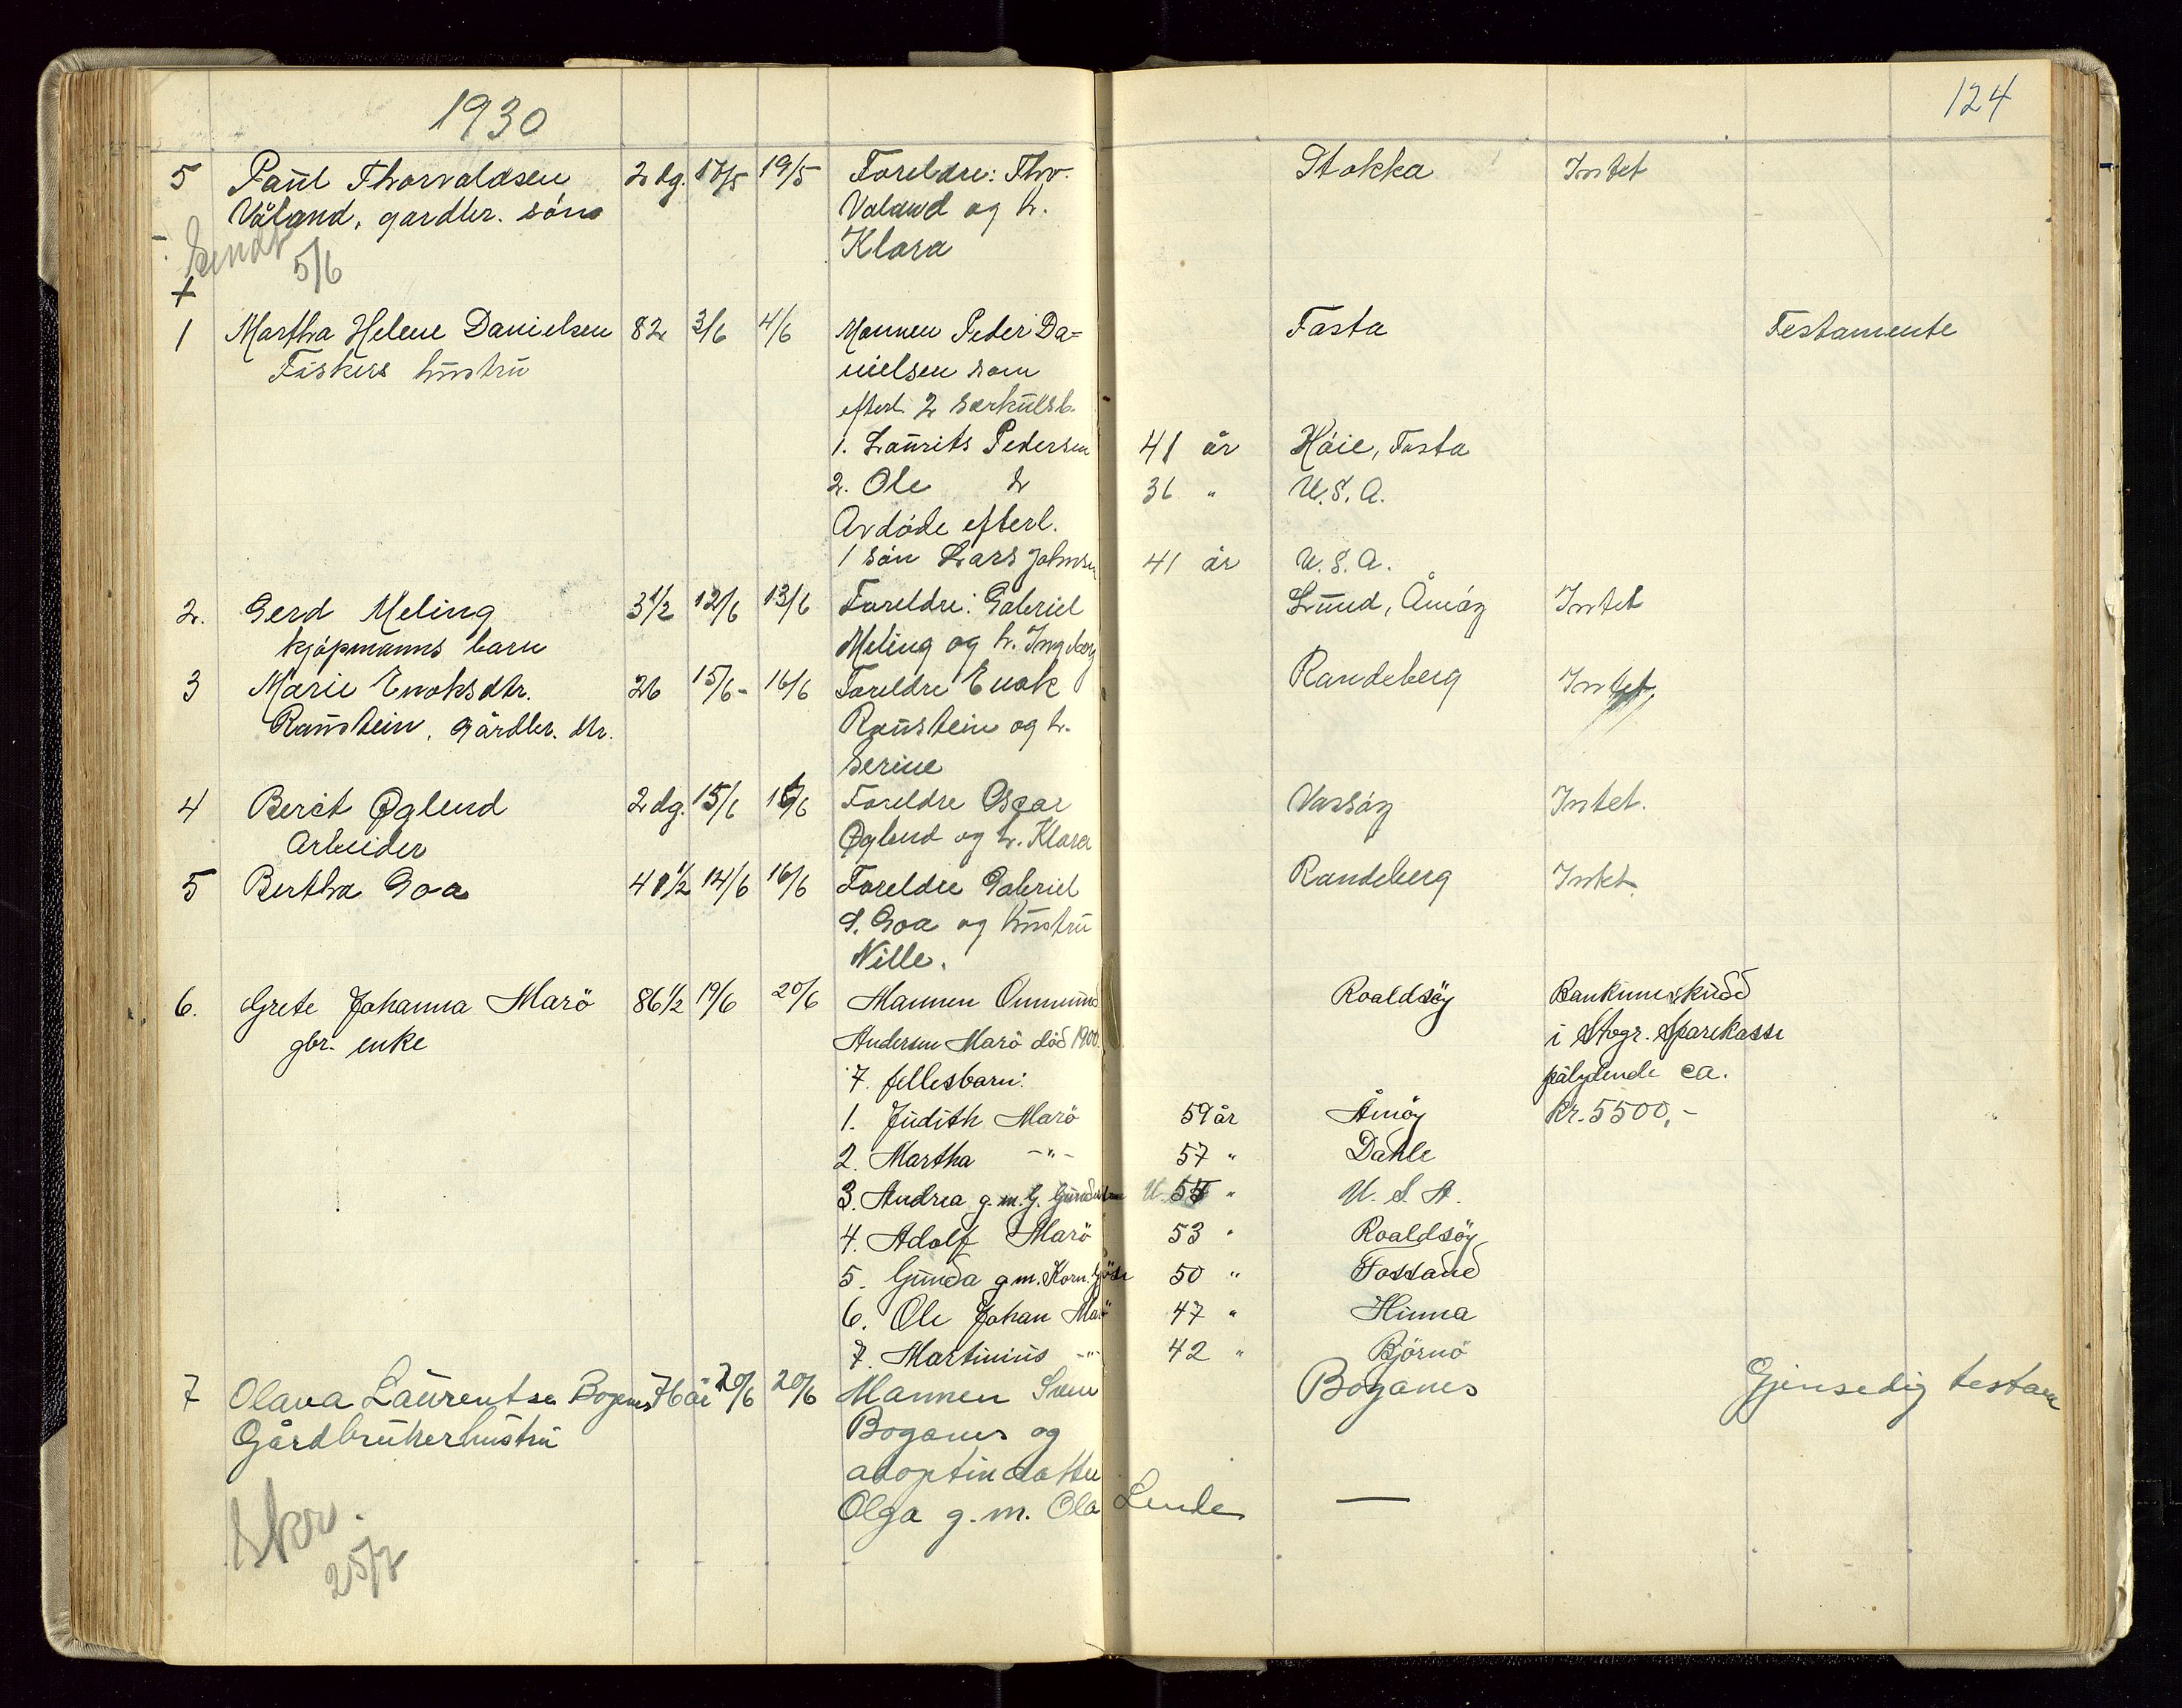 1930
124
5 Paul Thorvaldsen 2 dg. 17/5 19/5 Foreldre: Thv. Stokka Intet
Våland, gardbr. sönn Valand og h.
Sendt Klara
5/6
+
1 Martha Helene Danielsen 82 3/6 4/6 Mannen Peder Da= Tasta Testamente
Fiskers hustru nielsen som
efterl. 2 særkulsb.
1. Laurits Pedersen 41 år Höie, Tasta
2. Ole 36 " U.S.A.
Avdöde efterl.
1 sön Lars Johnsen 41 år U.S.A.
2. Gerd Meling 3 1/2 12/6 13/6 Foreldre: Gabriel Lund, Åmöy Intet
kjöpmanns barn Meling og h. Ingeborg
3 Marie Enoksdtr. 26 15/6 - 16/6 Foreldre Enok Randeberg Intet
Raustein, Gårdbr. dtr. Raustein og h.
Serine
4 Berit Øglend 2 dg. 15/6 16/6 Foreldre Oscar Vassöy Intet.
Arbeider Øglend og h. Klara
5 Bertha Goa 41 1/2 14/6 16/6 Foreldre Gabriel Randeberg Intet
S. Goa og hustru
Nille.
6. Grete Johanna Marö 86 1/2 19/6 20/6 Mannen Ommund Roaldsöy Bankinnskudd
gbr. enke Andersen Marö död 1900. i Stvgr. Sparekasse
7 fellesbarn: pålydende ca.
1. Judith Marö 59 år Åmöy Kr. 5500,-
2. Martha -"- 57 " Dahle
3. Andrea g.m. G. Gundersen 55 " U.S.A.
4. Adolf Marö 53 " Roaldsöy
5. Gunda g.m. Korn. 50 " Fossand
6. Ole Johan Marö 47 " Hinna
7. Martinius -"- 42 " Björnö
7 Olava Laurentse Boganes 76 år 20/6 20/6 Mannen Sven Boganes Gjensedig testam
Gårdbrukerhustru Boganes og
adoptivdatter
Olga g.m. Ola Lende —
Skr.
25/7